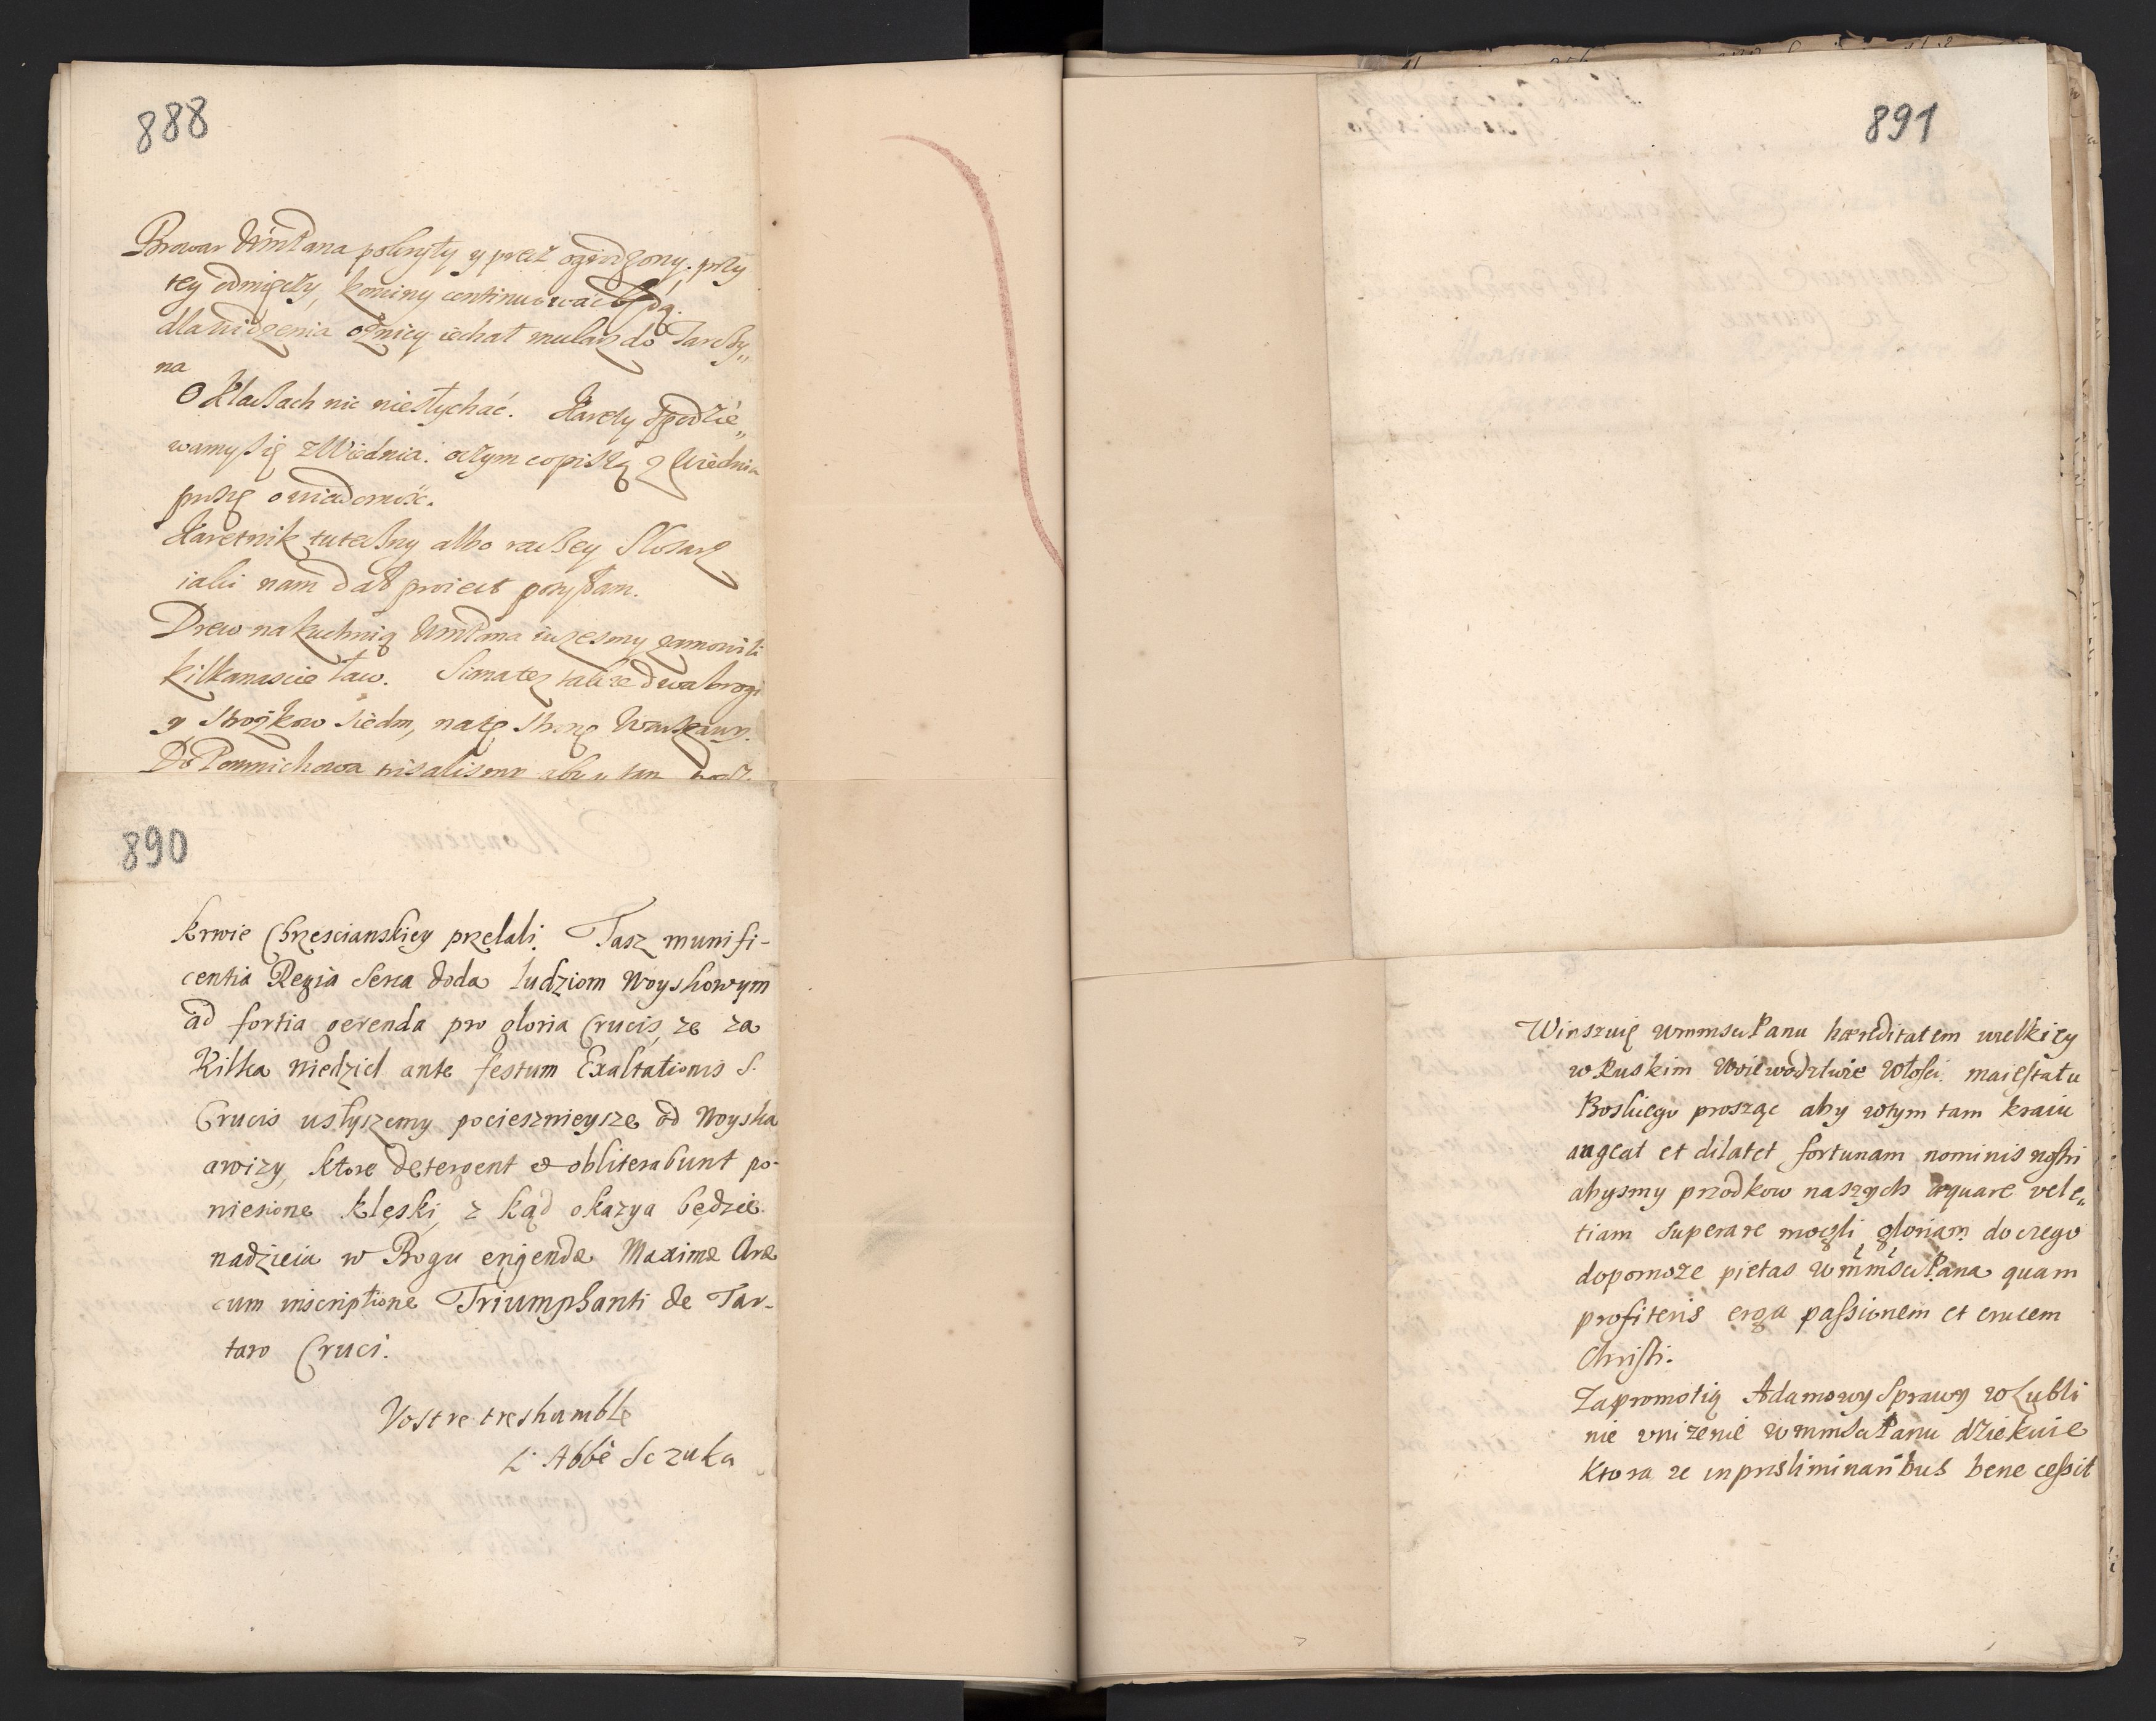 888
Browar WmPana pokryty y precz ogrodzony. przy
tey odmięczy, kominy continuować będą.
dla widzenia oznicy iechał mularz do Tarczy„
na
O Klaczach nic niesłychać. Karety spodzie„
wamy się z Wiednia. oczym co piszą z Wiednia
proszę o wiadomość.
Karetnik tuteczny albo raczey Slosarz
iaki nam dał proiect posyłam.
Drew na kuchnią WmPana iuzesmy zamowili
kilkanascie Law. Siana tez także dwa brogi
y Strożkow siedm, na tę stronę Warszawy.
Do Pomnichowa pisalismy aby y tam
890
krwie Chrzescianskiey przelali. Tasz munifi-
centia Regia serca doda ludziom Woyskowym
ad fortia gerenda pro gloria Crucis, ze za
Kilka niedziel ante festum Exaltationis S.
Crucis usłyszemy pocieszmieysze od Woyska
awizy, ktore detergent et obliterabunt po-
niesione klęski, z kąd okazya będzie
nadzieia w Bogu erigendæ Maximæ Aræ
cum inscriptione Triumphanti de Tar-
taro Cruci.
Vostre treshumble
L'Abbé Sczuka
891
Winszuię WmmsciPanu hæreditatem wielkiey
w Ruskim Woiewodztwie Włości. maiestatu
Boskiego prosząc aby w tym tam kraiu
augeat et dilatet fortunam nominis nostri
abysmy przodkow naszych æquare vel e„
tiam superare mogli gloriam. do czego
dopomoze pietas WmmsciPana quam
profiteris erga passionem et crucem
Christi.
Za promotią Adamowy Sprawy w Lubli
nie unizenie WmmsciPanu dziekuie
Ktora ze in præliminaribus bene cessit